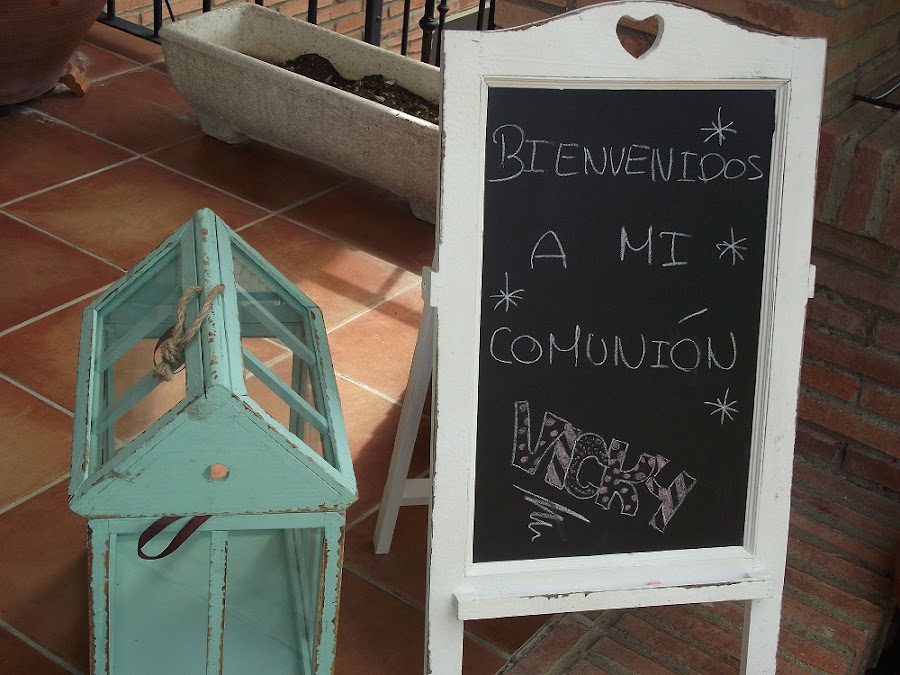 BIENVENIDOS
A MI
COMUNIÓN
VICKY